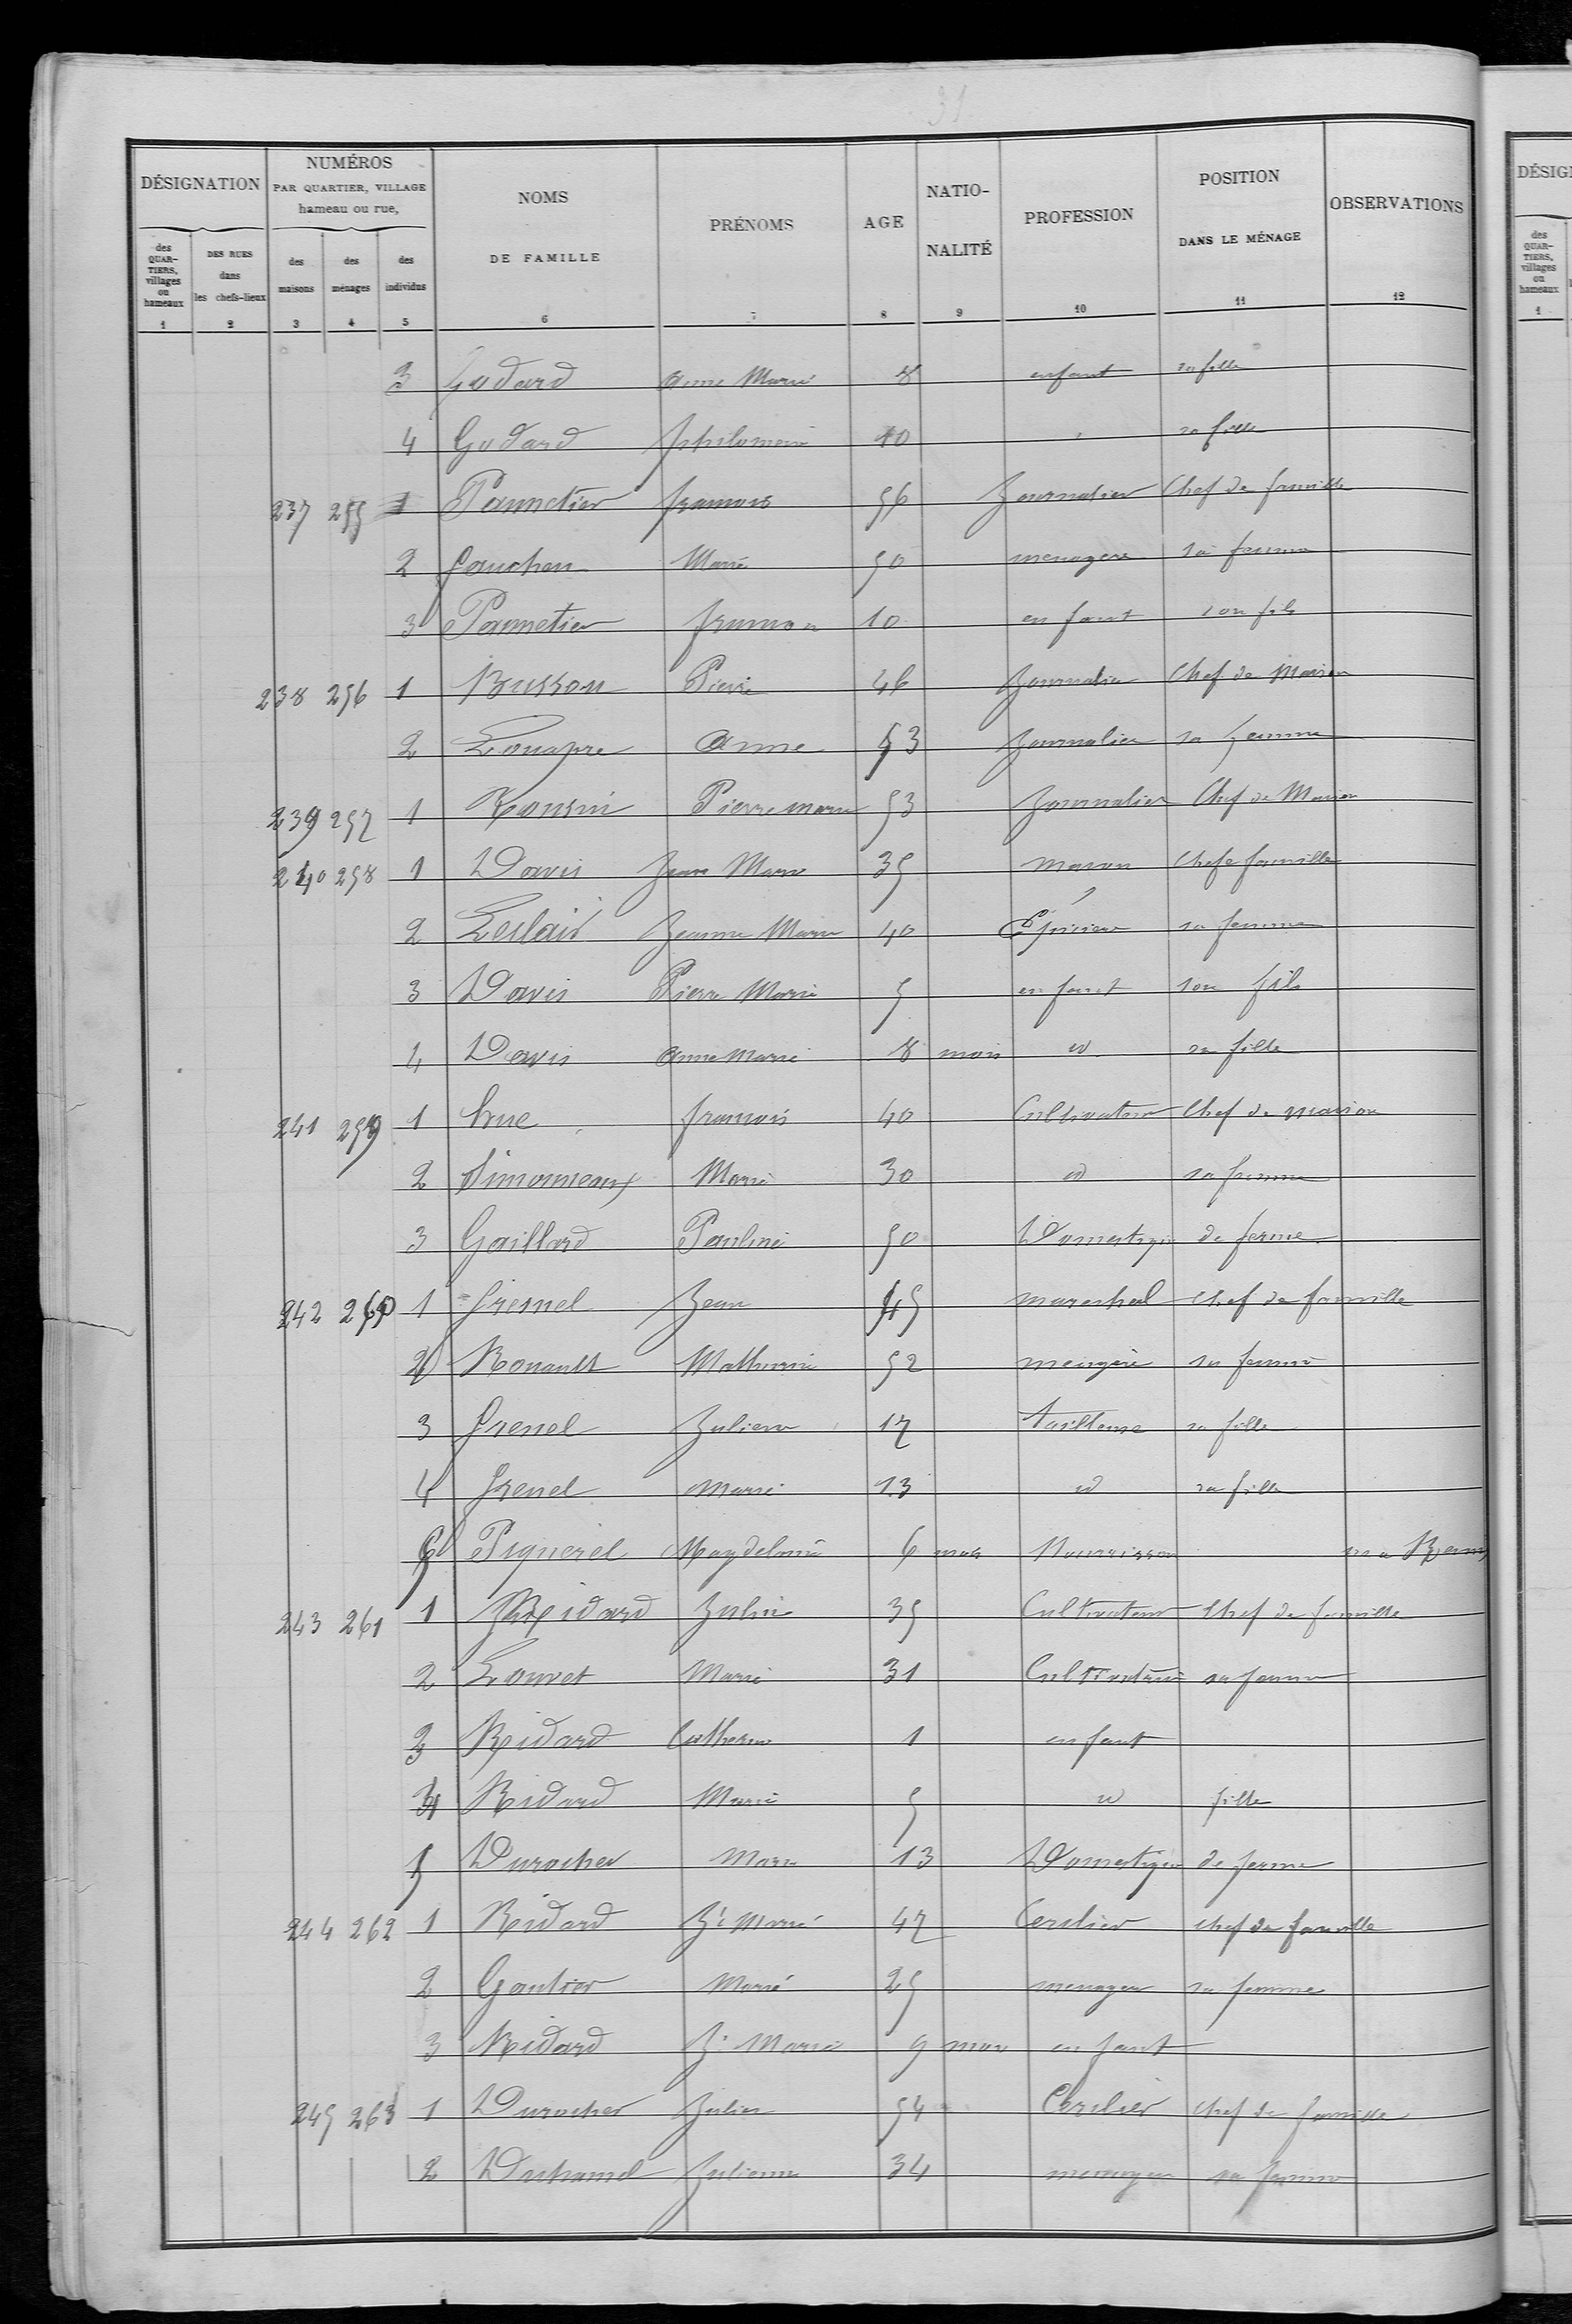 31
DÉSIGNATION NUMÉROS PAR QUARTIER, VILLAGE hameau ou rue, NOMS DE FAMILLE PRÉNOMS AGE NATIO-NALITÉ PROFESSION POSITION DANS LE MÉNAGE OBSERVATIONS
des QUAR-TIERS, villages ou hameaux DES RUES dans les chefs-lieux des maisons des ménages des individus
1 2 3 4 5 6 7 8 9 10 11 12
3 Godard anne Marie 8 enfant sa fille
4 Godard philomene 10 sa fille
237 255 1 Pannetier francois 56 Journalier Chef de famille
2 Gauchon Marie 50 menagere sa femme
3 Pannetier francois 10 enfant son fils
238 256 1 Busson Pierre 46 Journalier Chef de Maison
2 Louapre Anne 53 Journaliere sa femme
239 257 1 Roussin Pierre marie 53 Journalier Chef de Maison
240 258 1 Davis Jean Marie 35 maçon Chef famille
2 Leclair Jeanne Marie 40 Épiciere sa femme
3 Davis Pierre Marie 5 enfant son fils
4 Davis anne marie 8 mois id sa fille
241 259 1 hue francois 40 Cultivateur Chef de maison
2 Simonneaux Marie 30 id sa femme
3 Gaillard Pauline 50 Domestique de ferme
242 260 1 Gresnel Jean 45 marechal chef de famille
2 Rouault Mathurine 52 mengère sa femme
3 Grenel Julienne 17 tailleuse sa fille
4 Grenel marie 13 id sa fille
5 Piquerel Magdeleine 6 mois Nourrisson
243 261 1 Ridard Julien 35 Cultivateur chef de famille
2 Louvet Marie 31 Cultivatrice sa femme
3 Ridard Catherine 1 enfant
4 Ridard Marie 5 id fille
5 Durocher Marie 13 Domestique de ferme
244 262 1 Ridard Jn Marie 47 Cerclier chef de famille
2 Gautier Marie 25 menagere sa femme
3 Ridard Jn Marie 9 mois enfant
245 263 1 Durocher Julien 54 Cerclier chef de famille
2 Duhamel Julienne 34 menagere sa femme
DÉSIG
des QUAR-TIERS, villages ou hameaux
1